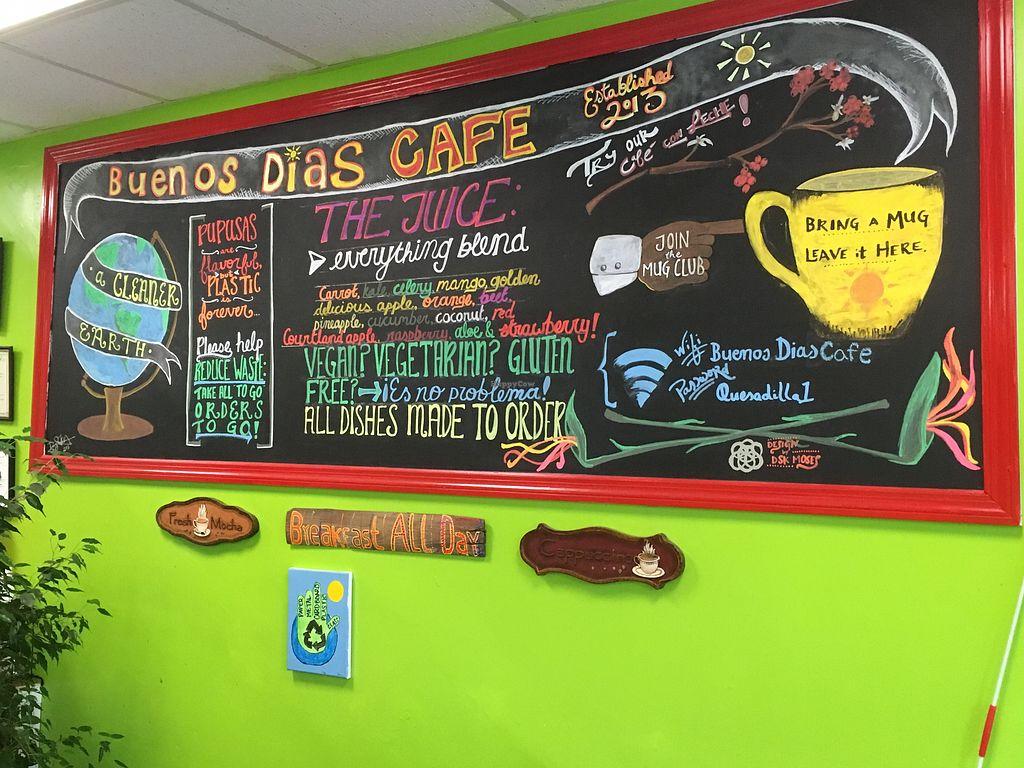 Buenos Dias CAFE
Established
2013
TRY OUR
Café con LECHE!
PUPUSAS
are
flavorful,
but
PLASTIC
is
forever...
Please help
REDUCE WASTE:
TAKE ALL TO GO
ORDERS
TO GO!
A CLEANER
EARTH
THE JUICE:
everything blend
Carrot, kale, celery, mango, golden
delicious apple, orange, beet,
pineapple, cucumber, coconut, red
Courtland apple, raspberry, aloe & strawberry!
VEGAN? VEGETARIAN? GLUTEN
FREE? → ¡Es no problema!
ALL DISHES MADE TO ORDER
JOIN
the
MUG CLUB
BRING A MUG
LEAVE it HERE.
wifi Buenos DiasCafe
Password
Quesadilla1
DESIGN
by
DSK MOSES
HappyCow
Fresh Mocha
Breakfast ALL Day
Cappuccino
PAPER
METAL
CARDBOARD
PLASTIC